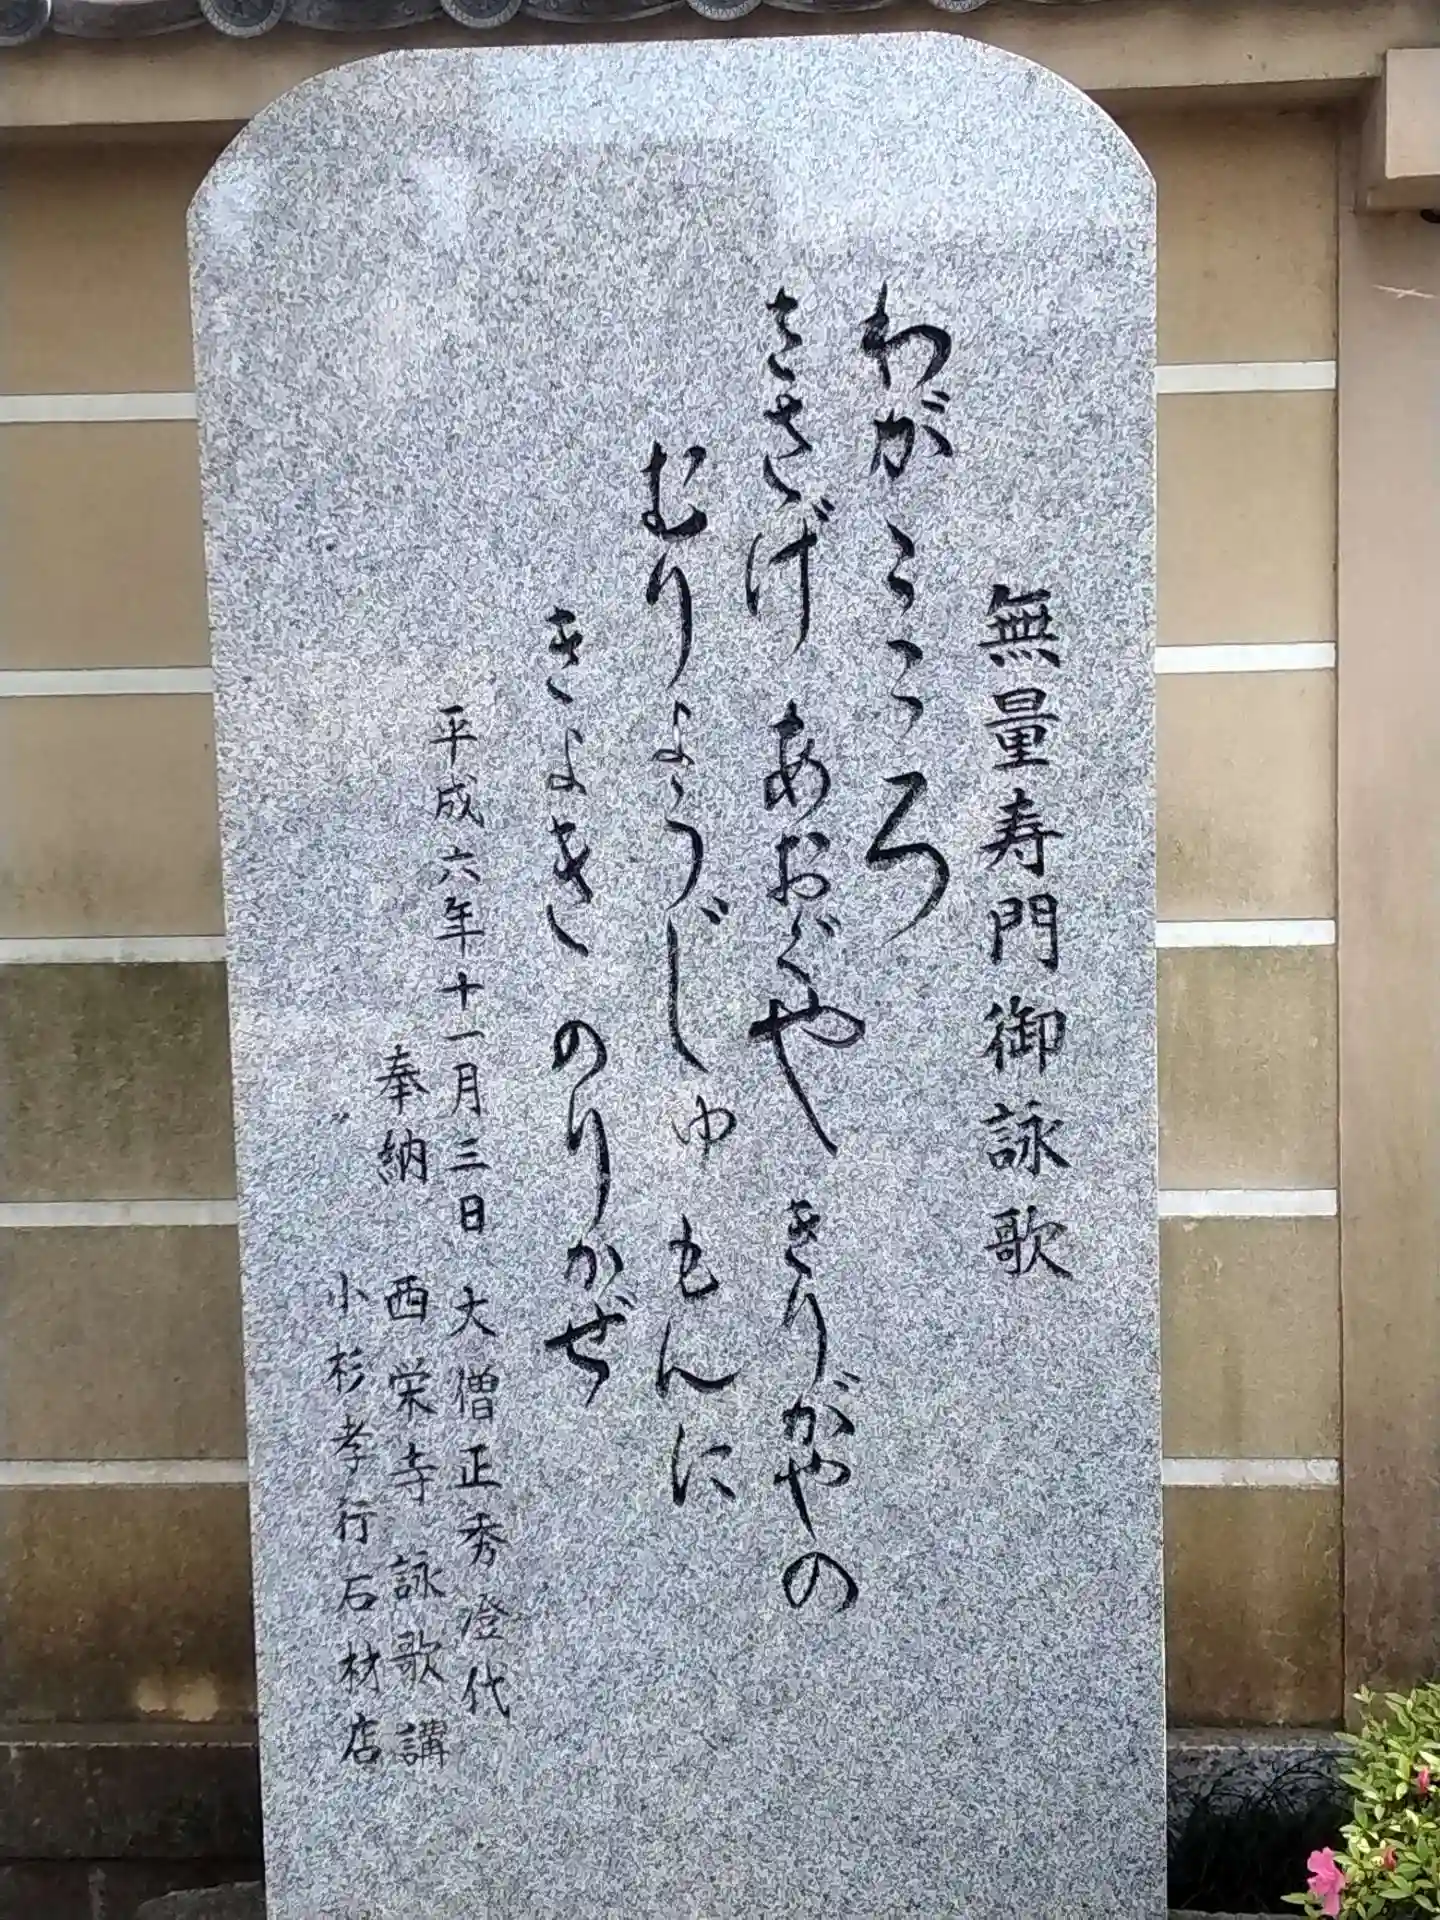 無量寿門御詠歌
わがこころ
ささげ あおぐや きりがやの
むりょうじゅもんに
きよき のりかぜ
平成六年十一月三日 大僧正秀澄代
奉納 西栄寺詠歌講
小杉孝行石材店